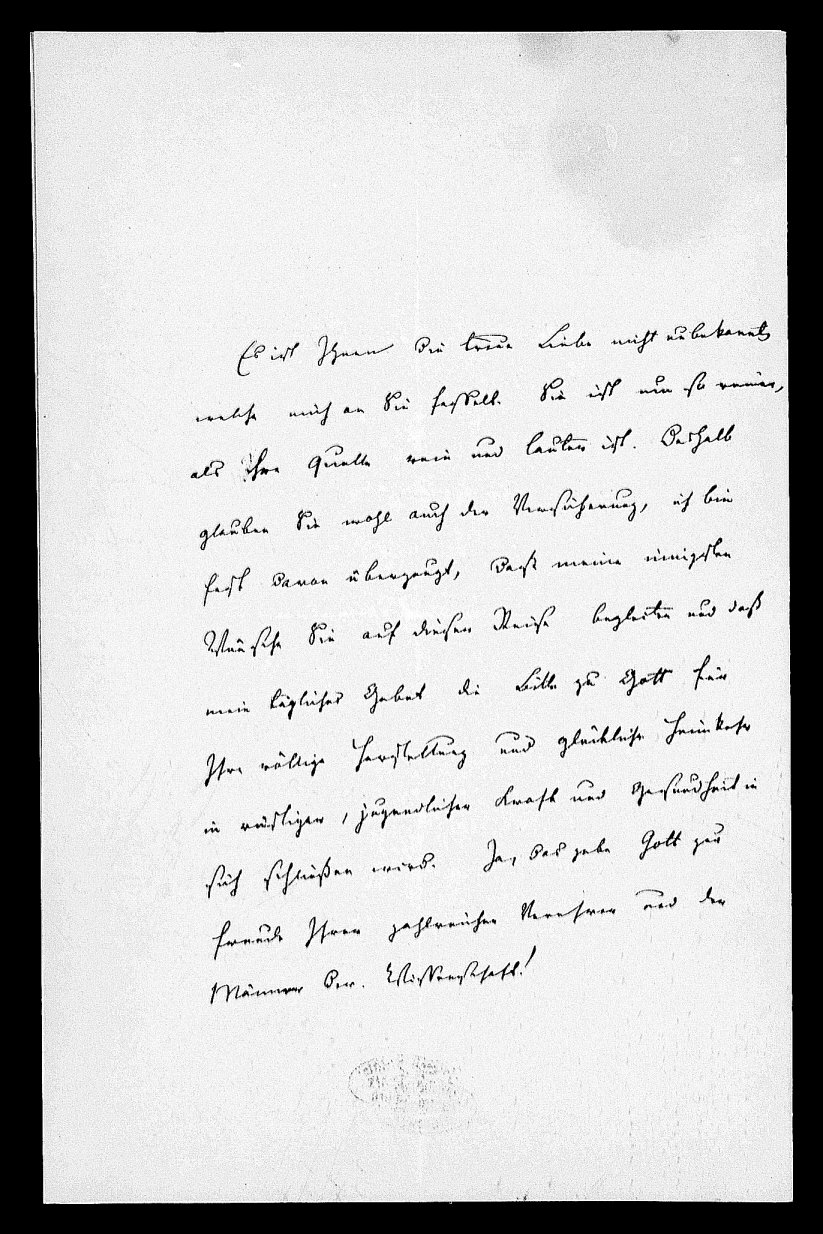 Es ist Ihnen die treue Liebe nicht unbekannt,
welche mich an Sie fesselt. Sie ist um so reiner,
als Ihre Quelle rein und lauter ist. Deshalb
glauben Sie wohl auch der Versicherung, ich bin
fest davon überzeugt, daß meine innigsten
Wünsche Sie auf dieser Reise begleiten und daß
mein tägliches Gebet die Bitte zu Gott für
Ihre völlige Herstellung und glückliche Heimkehr
in rüstiger, jugendlicher Kraft und Gesundheit in
sich schließen wird. Ja, das gebe Gott zur
Freude Ihrer zahlreichen Verehrer und der
Männer der Wissenschaft!